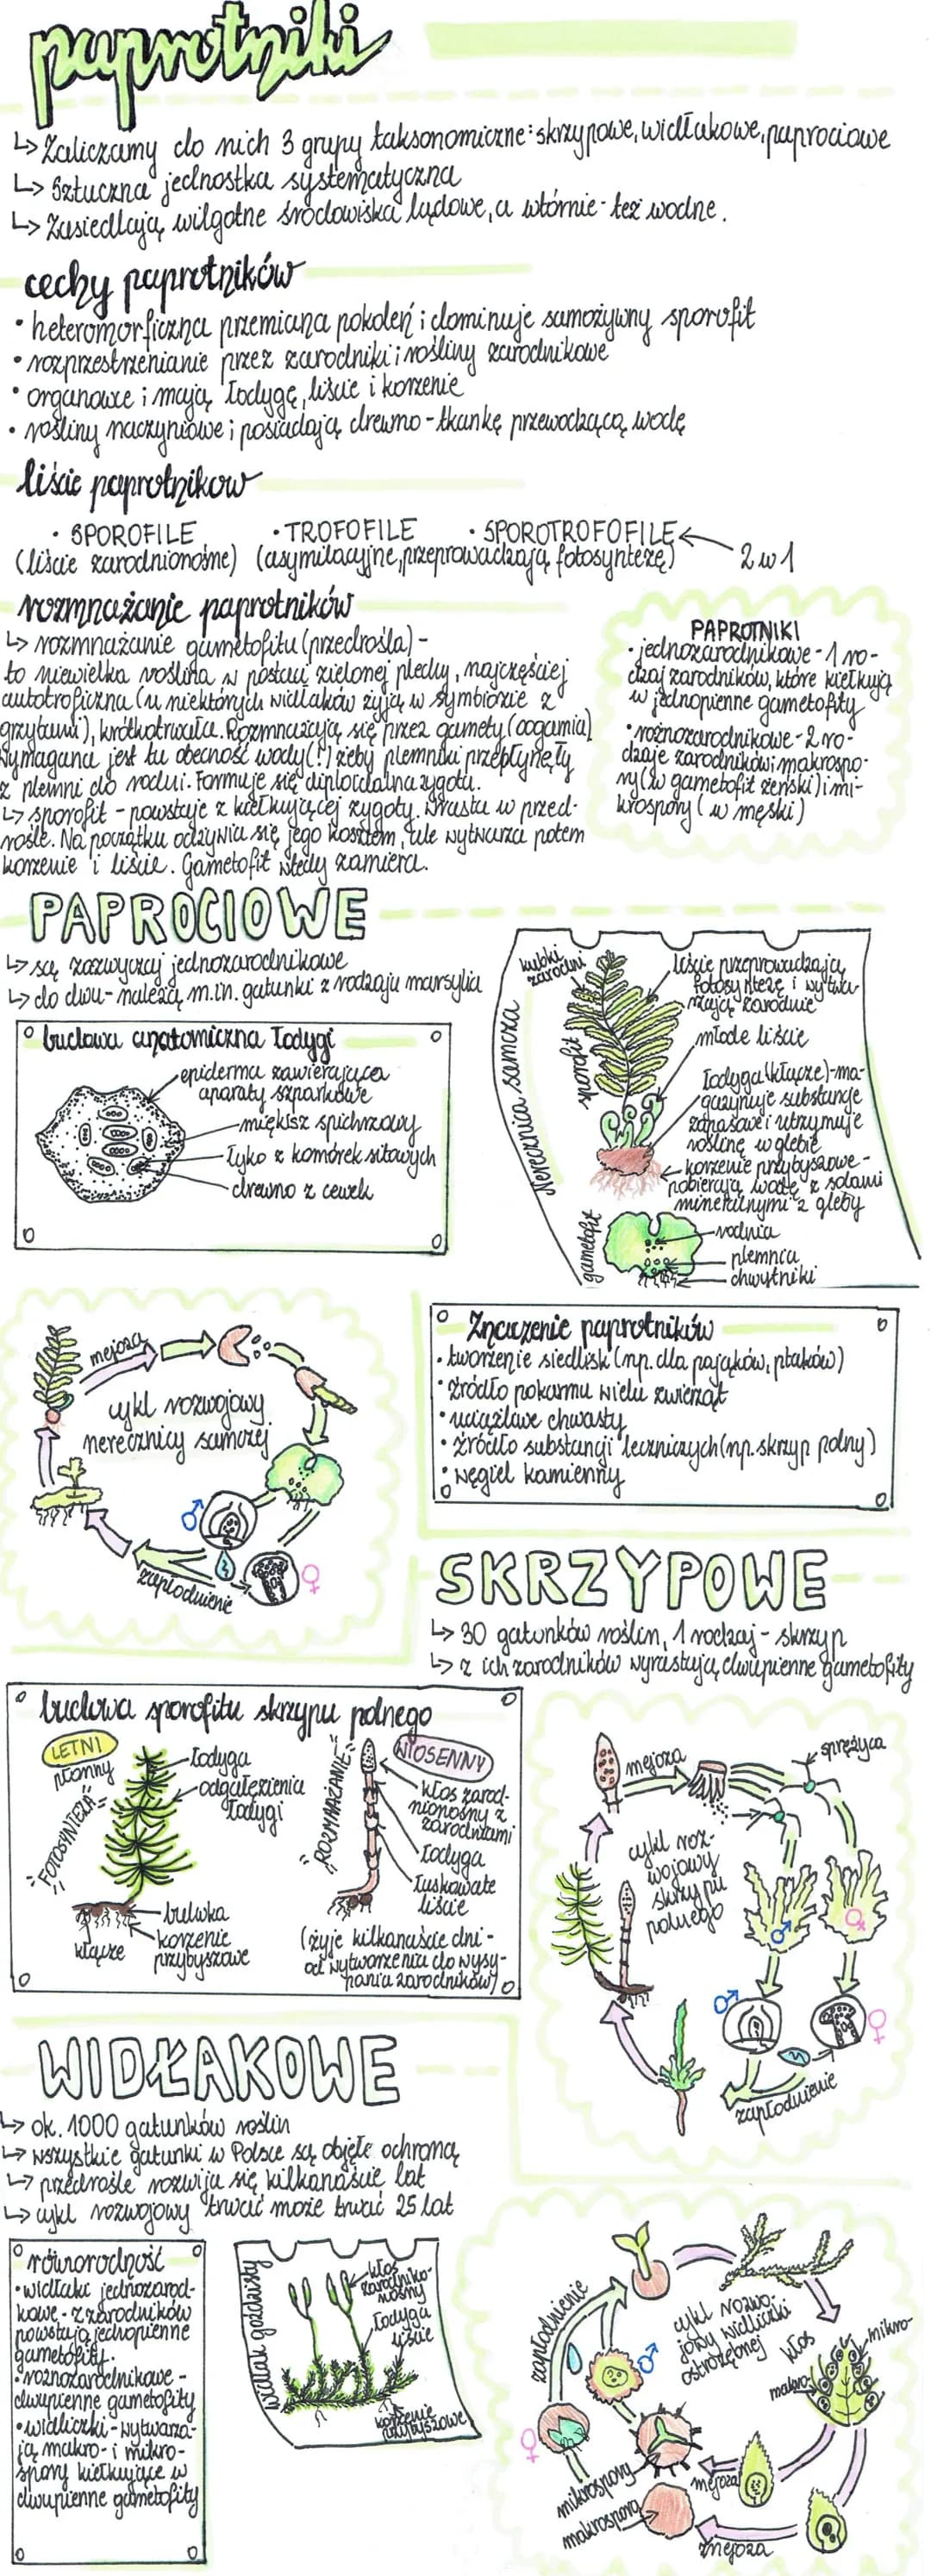 paprotniki
↳ Zaliczamy do nich 3 grupy taksonomiczne: skrzypowe, widłakowe, paprociowe
↳ Sztuczna jednostka systematyczna
↳ Zasiedlają wilgotne środowiska lądowe, a wtórnie - też wodne.
cechy paprotników
• heteromorficzna przemiana pokoleń i dominuje samożywny sporofit
• rozprzestrzenianie przez zarodniki; rośliny zarodnikowe
• organowce; mają łodygę, liście i korzenie
• rośliny naczyniowe; posiadają drewno - tkankę przewodzącą wodę
liście paprotnikow
• SPOROFILE • TROFOFILE • SPOROTROFOFILE
(liście zarodnionośne) (asymilacyjne, przeprowadzają fotosyntezę) 2 w 1
rozmnażanie paprotników
↳ rozmnażanie gametofitu (przedrośla) -
to niewielka roślina w postaci zielonej plechy, najczęściej
autotroficzna (u niektórych widłaków żyją w symbiozie z
grzybami), krótkotrwała. Rozmnażają się przez gamety (oogamia)
Wymagana jest tu obecność wody(!) żeby plemniki przepłynęły
z plemni do rodni. Formuje się diploidalna zygota.
↳ sporofit - powstaje z kiełkującej zygoty. Wrasta w przed-
rośle. Na początku odżywia się jego kosztem, ale wytwarza potem
korzenie i liście. Gametofit wtedy zamiera.
PAPROTNIKI
• jednozarodnikowe - 1 ro-
dzaj zarodników, które kiełkują
w jednopienne gametofity
• różnozarodnikowe - 2 ro-
dzaje zarodników; makrospo-
ry (w gametofit żeński) i mi-
krospory (w męski)
PAPROCIOWE
↳ są zazwyczaj jednozarodnikowe
↳ do dwu- należą m.in. gatunki z rodzaju marsylia
budowa anatomiczna łodygi
epiderma zawierająca
aparaty szparkowe
miękisz spichrzowy
łyko z komórek sitowych
drewno z cewek
Nerecznica samcza
kupki
zarodni
sporofit
liście przeprowadzają
fotosyntezę i wytwa-
rzają zarodnie
młode liście
łodyga (kłącze) - ma-
gazynuje substancje
zapasowe i utrzymuje
roślinę w glebie
korzenie przybyszowe -
pobierają wodę z solami
mineralnymi z gleby
gametofit
rodnia
plemnia
chwytniki
mejoza
cykl rozwojowy
nerecznicy samczej
zapłodnienie
Znaczenie paprotników
• tworzenie siedlisk (np. dla pająków, ptaków)
• źródło pokarmu wielu zwierząt
• uciążliwe chwasty
• źródło substancji leczniczych (np. skrzyp polny)
• węgiel kamienny
SKRZYPOWE
↳ 30 gatunków roślin, 1 rodzaj - skrzyp
↳ z ich zarodników wyrastają dwupienne gametofity
budowa sporofitu skrzypu polnego
LETNI
płonny
"FOTOSYNTEZA"
łodyga
odgałęzienia
łodygi
bulwka
korzenie
przybyszowe
kłącze
"ROZMNAŻANIE"
WIOSENNY
kłos zarod-
nionośny z
zarodniami
łodyga
łuskowate
liście
(żyje kilkanaście dni -
od wytworzenia do wysy-
pania zarodników)
mejoza
sprężyca
cykl roz-
wojowy
skrzypu
polnego
zapłodnienie
WIDŁAKOWE
↳ ok. 1000 gatunków roślin
↳ wszystkie gatunki w Polsce są objęte ochroną
↳ przedrośle rozwija się kilkanaście lat
↳ cykl rozwojowy trwać może trwać 25 lat
różnorodność
• widłaki jednozarod-
kowe - z zarodników
powstają jednopienne
gametofity.
• różnozarodnikowe -
dwupienne gametofity
• widliczki - wytwarza-
ją makro- i mikro-
spory kiełkujące w
dwupienne gametofity
widłak goździsty
kłos
zarodniko-
nośny
łodyga
liście
korzenie
przybyszowe
zapłodnienie
cykl rozwo-
jowy widliczki
ostrozębnej
kłos
mikro-
makro-
mikrospory
makrospora
mejoza
mejoza